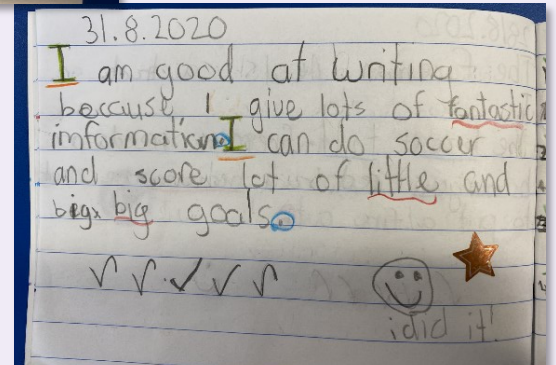 31.8.2020
I am good at writing
because I give lots of fantastic
imformation. I can do soccer
and score lot of little and
bigx big goals.
i did it!